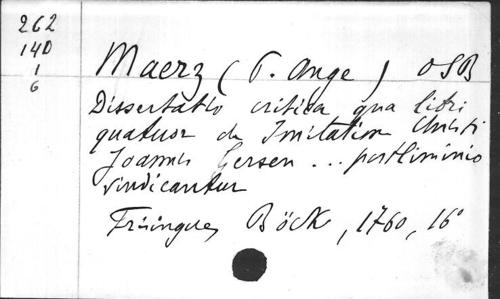 262
140
1
6
Maerz (P. Ange) OSB
Dissertatio critica qua libri
quatuor de Imitatione Christi
Joannis Gersen ... postliminio
vindicantur
Frisingue, Böck, 1760, 16°